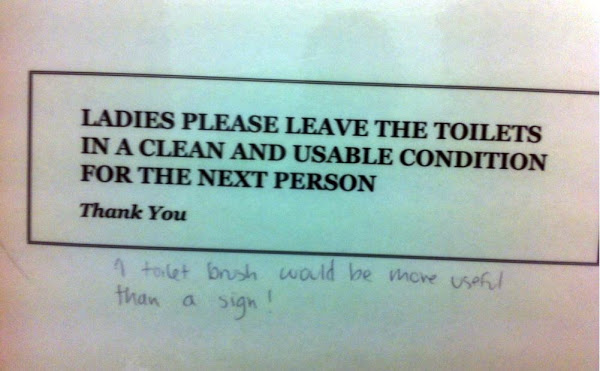 LADIES PLEASE LEAVE THE TOILETS
IN A CLEAN AND USABLE CONDITION
FOR THE NEXT PERSON
Thank You
A toilet brush would be more useful
than a sign!